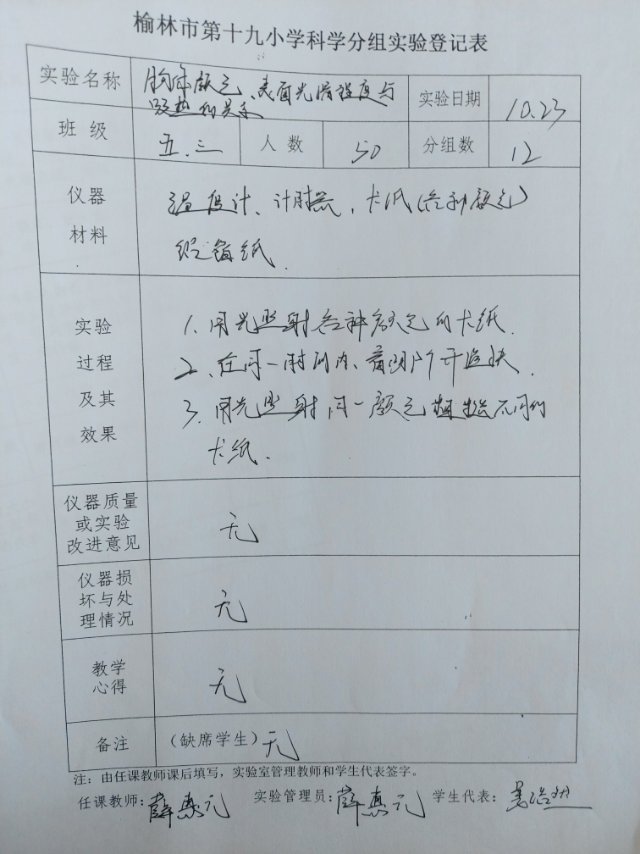 榆林市第十九小学科学分组实验登记表
实验名称 物体颜色、表面光滑程度与
吸热的关系
实验日期 10.23
班级 五.三 人数 50 分组数 12
仪器
材料
温度计、计时器、卡纸(各种颜色)
铝箔纸.
实验
过程
及其
效果
1. 用光照射各种颜色的卡纸.
2、在同一时间内、看哪个升温快.
3. 用光照射同一颜色粗糙不同的
卡纸.
仪器质量
或实验
改进意见
无
仪器损
坏与处
理情况
无
教学
心得
无
备注 (缺席学生)无
注：由任课教师课后填写，实验室管理教师和学生代表签字。
任课教师:薛惠元 实验管理员:薛惠元 学生代表: